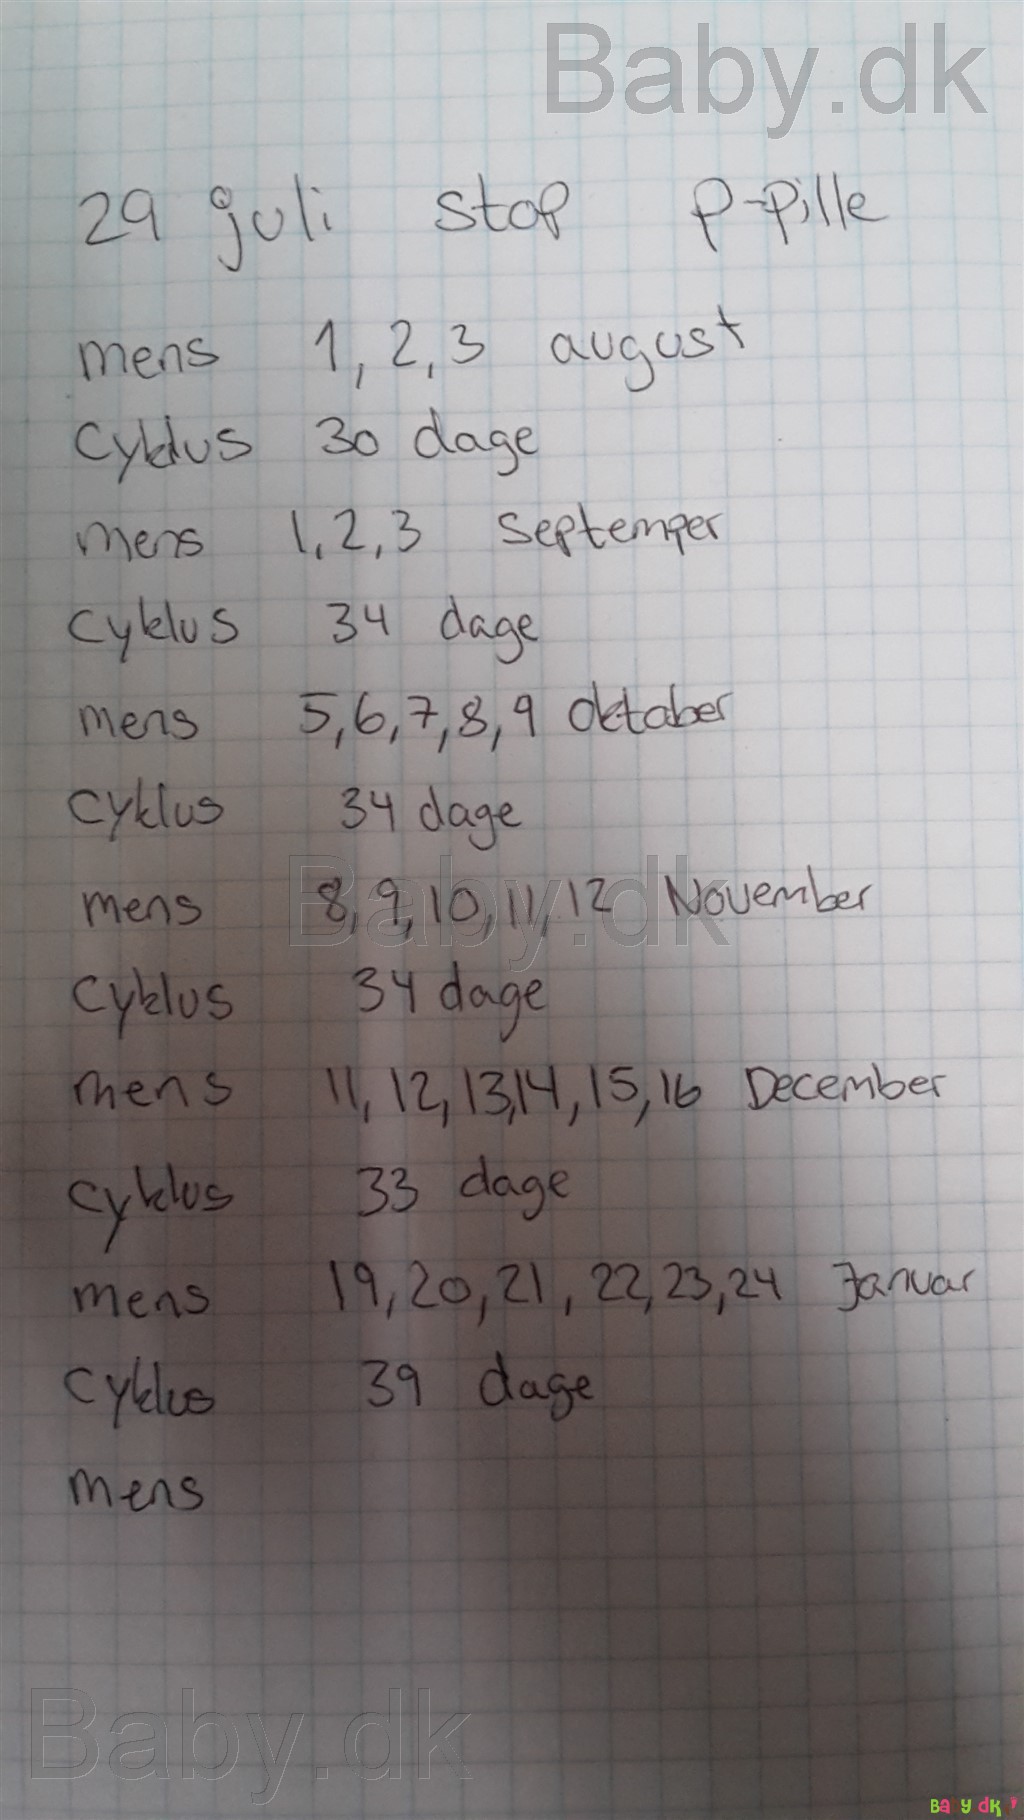 Baby.dk
29 juli stop p-pille
mens 1, 2, 3 august
Cyklus 30 dage
mens 1, 2, 3 Septemper
Cyklus 34 dage
mens 5, 6, 7, 8, 9 Oktober
Cyklus 34 dage
mens 8, 9, 10, 11, 12 November
Baby.dk
Cyklus 34 dage
mens 11, 12, 13, 14, 15, 16 December
Cyklus 33 dage
mens 19, 20, 21, 22, 23, 24 Januar
Cyklus 39 dage
mens
Baby.dk
BaBy dk !